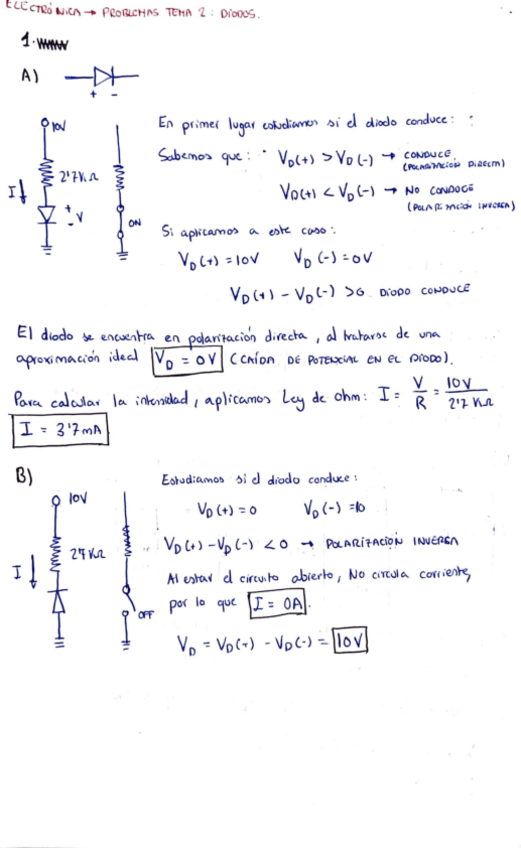 ELECTRÓNICA → PROBLEMAS TEMA 2: DIODOS.
1.
A)
+ -
10V
2'7KΩ
I
+
- V
ON
En primer lugar estudiamos si el diodo conduce:
Sabemos que: VD(+) > VD(-) → CONDUCE
(POLARIZACIÓN DIRECTA)
VD(+) < VD(-) → NO CONDUCE
(POLARIZACIÓN INVERSA)
Si aplicamos a este caso:
VD(+) = 10V VD(-) = 0V
VD(+) - VD(-) > 0 DIODO CONDUCE
El diodo se encuentra en polarización directa, al tratarse de una
aproximación ideal VD = 0V (CAÍDA DE POTENCIAL EN EL DIODO).
Para calcular la intensidad, aplicamos Ley de ohm: I = V/R = 10V/2'7KΩ
I = 3'7mA
B)
10V
27KΩ
I
OFF
Estudiamos si el diodo conduce:
VD(+) = 0 VD(-) = 10
VD(+) - VD(-) < 0 → POLARIZACIÓN INVERSA
Al estar el circuito abierto, No circula corriente,
por lo que I = 0A.
VD = VD(+) - VD(-) = 10V